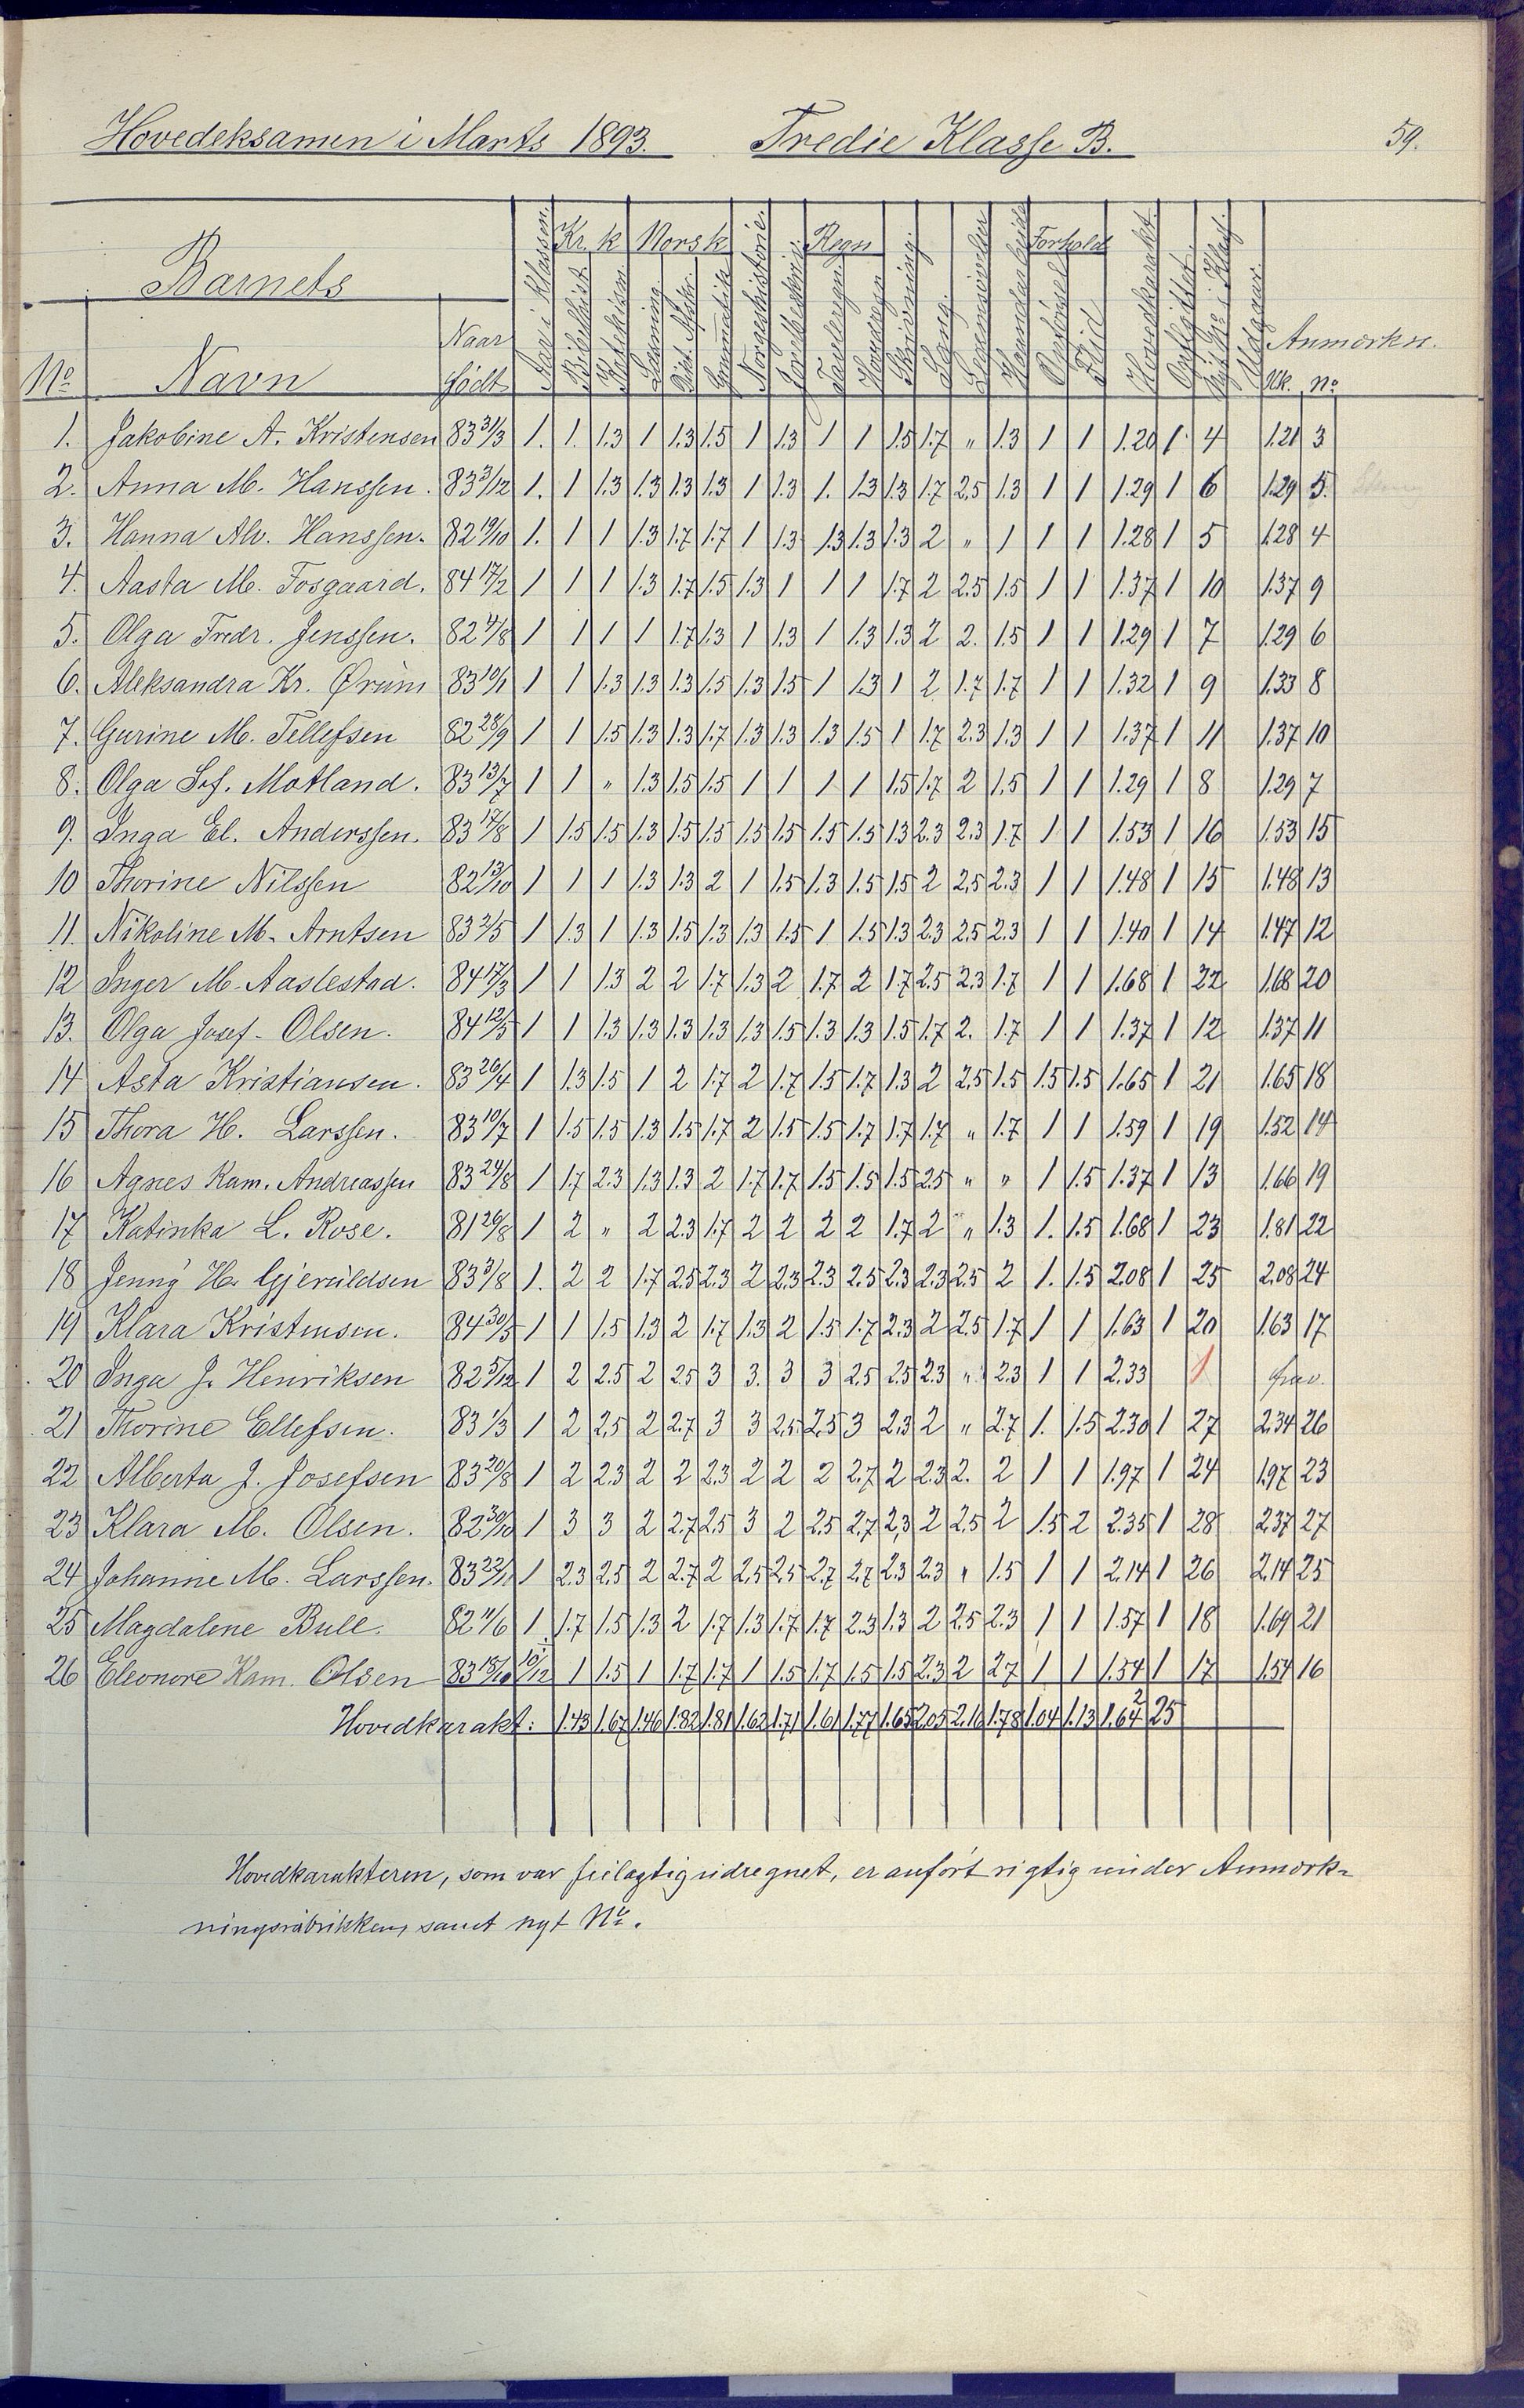 Hovedeksamen i Marts 1893. Tredie Klasse B. 59.
Barnets
Kr. k Norsk Regn Forhold
No Navn Naar født Aar i Klassen. Bibelhist. Katekism Læsning Grammatik Norgeshistorie. Tavleregn. Hovedregn Skrivning. Sang. Legemsøvelser Haandarbeide Opførsel Flid Hovedkarakt. Opflyttet Anmørkn.
Hk. No
1. Jakobine A. Kristensen 83 31/3 1. 1. 1.3 1 1.3 1.5 1 1.3 1 1 1.5 1.7 " 1.3 1 1 1.20 1 4 1.21 3
2. Anna M. Hanssen. 83 3/12 1. 1 1.3 1.3 1.3 1.3 1 1.3 1. 1.3 1.3 1.7 2.5 1.3 1 1 1.29 1 6 1.29 5.
3. Hanna Alv. Hanssen. 82 19/10 1. 1 1 1.3 1.7 1.7 1 1.3 1.3 1.3 1.3 2 " 1 1 1 1.28 1 5 1.28 4
4. Aasta M. Fosgaard. 84 17/2 1 1 1 1.3 1.7 1.5 1.3 1 1 1 1.7 2 2.5 1.5 1 1 1.37 1 10 1.37 9
5. Olga Fredr. Jenssen. 82 4/8 1 1 1 1 1.7 1.3 1 1.3 1 1.3 1.3 2 2. 1.5 1 1 1.29 1 7 1.29 6
6. Aleksandra Kr. Ørum 83 19/1 1 1 1.3 1.3 1.3 1.5 1.3 1.5 1 1.3 1 2 1.7 1.7 1 1 1.32 1 9 1.33 8
7. Gurine M. Tellefsen 82 28/9 1 1 1.5 1.3 1.3 1.7 1.3 1.3 1.3 1.5 1 1.7 2.3 1.3 1 1 1.37 1 11 1.37 10
8. Olga Sof. Motland. 83 13/7 1 1 " 1.3 1.5 1.5 1 1 1 1 1.5 1.7 2 1.5 1 1 1.29 1 8 1.29 7
9. Inga El. Anderssen. 83 17/8 1 1.5 1.5 1.3 1.5 1.5 1.5 1.5 1.5 1.5 1.3 2.3 2.3 1.7 1 1 1.53 1 16 1.53 15
10 Thorine Nilssen 82 13/10 1 1 1 1.3 1.3 2 1 1.5 1.3 1.5 1.5 2 2.5 2.3 1 1 1.48 1 15 1.48 13
11. Nikoline M. Arntsen 83 2/5 1 1.3 1 1.3 1.5 1.3 1.3 1.5 1 1.5 1.3 2.3 2.5 2.3 1 1 1.40 1 14 1.47 12
12 Inger M. Aaslestad. 84 17/3 1 1 1.3 2 2 1.7 1.3 2 1.7 2 1.7 2.5 2.3 1.7 1 1 1.68 1 22 1.68 20
13. Olga Josef. Olsen. 84 12/5 1 1 1.3 1.3 1.3 1.3 1.3 1.5 1.3 1.3 1.5 1.7 2. 1.7 1 1 1.37 1 12 1.37 11
14 Asta Kristiansen. 83 26/4 1 1.3 1.5 1 2 1.7 2 1.7 1.5 1.7 1.3 2 2.5 1.5 1.5 1.5 1.65 1 21 1.65 18
15 Thora H. Larssen. 83 10/7 1 1.5 1.5 1.3 1.5 1.7 2 1.5 1.5 1.7 1.7 1.7 " 1.7 1 1 1.59 1 19 1.52 14
16 Agnes Kam. Andreassen 83 24/8 1 1.7 2.3 1.3 1.3 2 1.7 1.7 1.5 1.5 1.5 2.5 " " 1 1.5 1.37 1 13 1.66 19
17 Katinka L. Rose. 81 26/8 1 2 " 2 2.3 1.7 2 2 2 2 1.7 2 " 1.3 1. 1.5 1.68 1 23 1.81 22
18 Jenny H. Gjeruldsen 83 3/8 1. 2 2 1.7 2.5 2.3 2 2.3 2.3 2.5 2.3 2.3 2.5 2 1. 1.5 2.08 1 25 2.08 24
19 Klara Kristensen. 84 30/5 1 1 1.5 1.3 2 1.7 1.3 2 1.5 1.7 2.3 2 2.5 1.7 1 1 1.63 1 20 1.63 17
20 Inga J. Henriksen 82 5/12 1 2 2.5 2 2.5 3 3. 3 3 2.5 2.5 2.3 " 2.3 1 1 2.33 1
21 Thorine Ellefsen. 83 1/3 1 2 2.5 2 2.7 3 3 2.5 2.5 3 2.3 2 " 2.7 1. 1.5 2.30 1 27 2.34 26
22 Alberta J. Josefsen 83 20/8 1 2 2.3 2 2 2.3 2 2 2 2.7 2 2.3 2. 2 1 1 1.97 1 24 1.97 23
23 Klara M. Olsen. 82 30/10 1 3 3 2 2.7 2.5 3 2 2.5 2.7 2.3 2 2.5 2 1.5 2 2.35 1 28 2.37 27
24 Johanne M. Larssen. 83 22/11 1 2.3 2.5 2 2.7 2 2.5 2.5 2.7 2.7 2.3 2.3 " 1.5 1 1 2.14 1 26 2.14 25
25 Magdalene Bull. 82 11/6 1 1.7 1.5 1.3 2 1.7 1.3 1.7 1.7 2.3 1.3 2 2.5 2.3 1 1 1.57 1 18 1.69 21
26 Eleonore Kam. Olsen 83 18/10 10/12 1 1.5 1 1.7 1.7 1 1.5 1.7 1.5 1.5 2.3 2 2.7 1 1 1.54 1 17 1.54 16
Hovedkarakt: 1.43 1.67 1.46 1.82 1.81 1.63 1.71 1.61 1.77 1.65 2.05 2.16 1.78 1.04 1.13 1.64 2 25
Hovedkarakteren, som var feilagtig udregnet, er anført rigtig under Anmørk-
ningsrubrikken, samt nyt No.